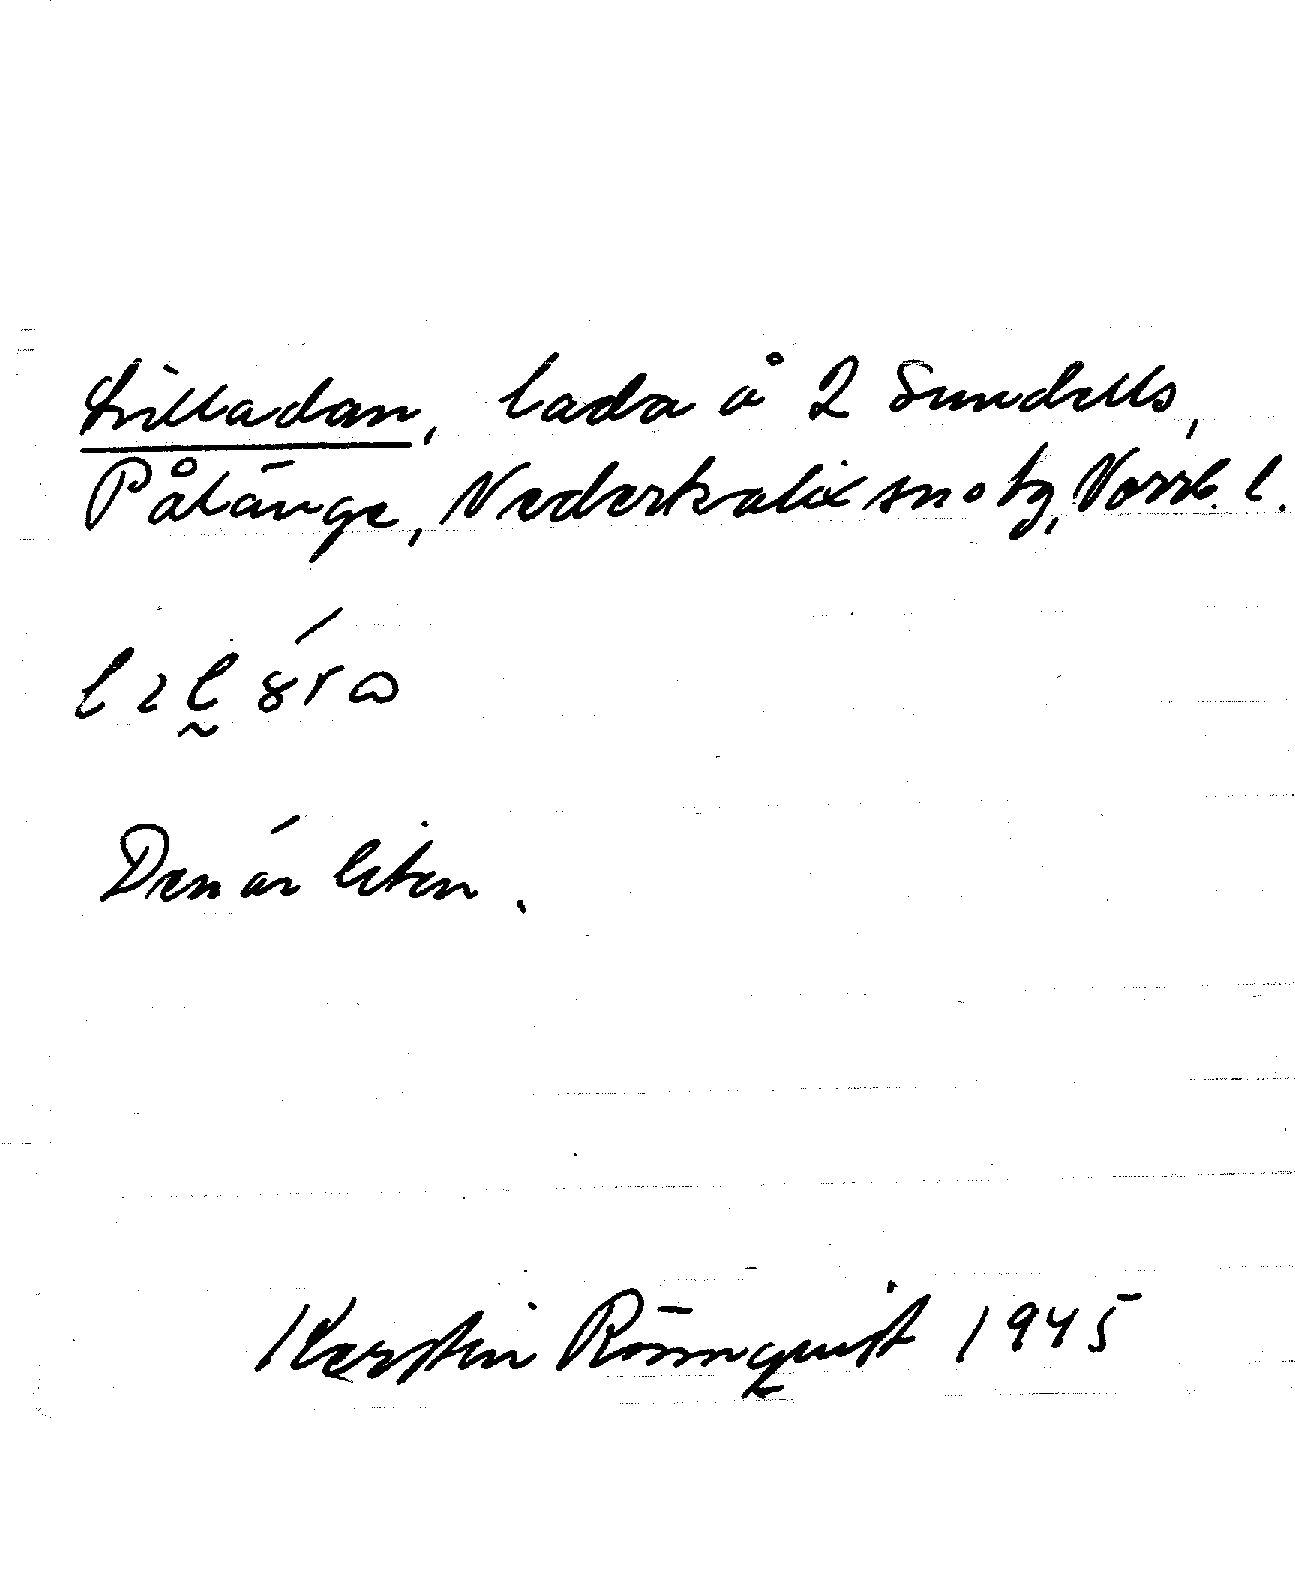 Lilladan, lada å 2 Sundells,
Pålänge, Nederkalix sn o tg, Norrb. l.
Den är liten.
Kerstin Rönnquist 1945